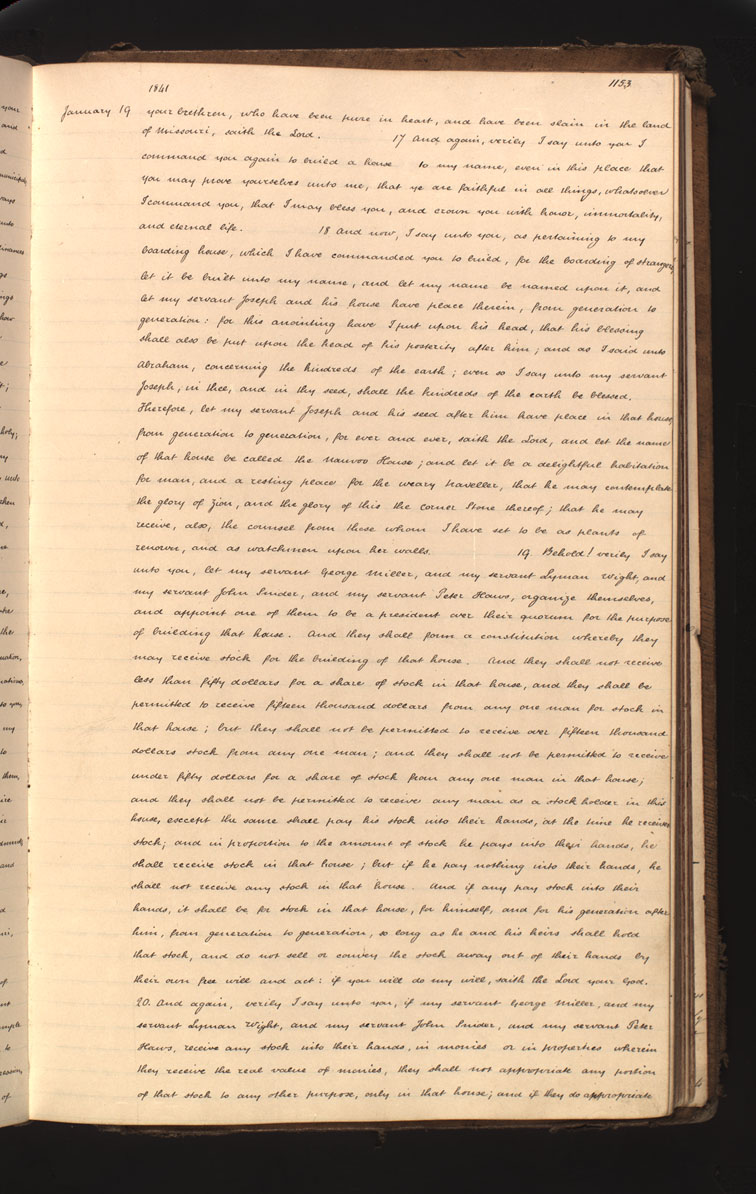 1841
1153
January 19 your brethren, who have been pure in heart, and have been slain in the land
of Missouri, saith the Lord. 17 And again, verily I say unto you I
command you again to build a house to my name, even in this place that
you may prove yourselves unto me, that ye are faithful in all things, whatsoever
I command you, that I may bless you, and crown you with honor, immortality,
and eternal life. 18 And now, I say unto you, as pertaining to my
boarding house, which I have commanded you to build, for the boarding of strangers,
let it be built unto my name, and let my name be named upon it, and
let my servant Joseph and his house have place therein, from generation to
generation: for this anointing have I put upon his head, that his blessing
shall also be put upon the head of his posterity after him; and as I said unto
Abraham, concerning the kindreds of the earth; even so I say unto my servant
Joseph, in thee, and in thy seed, shall the kindreds of the earth be blessed.
Therefore, let my servant Joseph and his seed after him have place in that house,
from generation to generation, for ever and ever, saith the Lord, and let the name
of that house be called the Nauvoo House; and let it be a delightful habitation
for man, and a resting place for the weary traveller, that he may contemplate
the glory of Zion, and the glory of this the corner Stone thereof; that he may
receive, also, the counsel from those whom I have set to be as plants of
renown, and as watchmen upon her walls. 19. Behold! verily I say
unto you, let my servant George Miller, and my servant Lyman Wight, and
my servant John Snider, and my servant Peter Haws, organize themselves,
and appoint one of them to be a president over their quorum for the purpose
of building that house. And they shall form a constitution whereby they
may receive stock for the building of that house. And they shall not receive
less than fifty dollars for a share of stock in that house, and they shall be
permitted to receive fifteen thousand dollars from any one man for stock in
that house; but they shall not be permitted to receive over fifteen thousand
dollars stock from any one man; and they shall not be permitted to receive
under fifty dollars for a share of stock from any one man in that house;
and they shall not be permitted to receive any man as a stock holder in this
house, except the same shall pay his stock into their hands, at the time he receives
stock; and in proportion to the amount of stock he pays into their hands, he
shall receive stock in that house; but if he pay nothing into their hands, he
shall not receive any stock in that house. And if any pay stock into their
hands, it shall be for stock in that house, for himself, and for his generation after
him, from generation to generation, so long as he and his heirs shall hold
that stock, and do not sell or convey the stock away out of their hands by
their own free will and act: if you will do my will, saith the Lord your God.
20. And again, verily I say unto you, if my servant George Miller, and my
servant Lyman Wight, and my servant John Snider, and my servant Peter
Haws, receive any stock into their hands, in monies or in properties wherein
they receive the real value of monies, they shall not appropriate any portion
of that stock to any other purpose, only in that house; and if they do appropriate